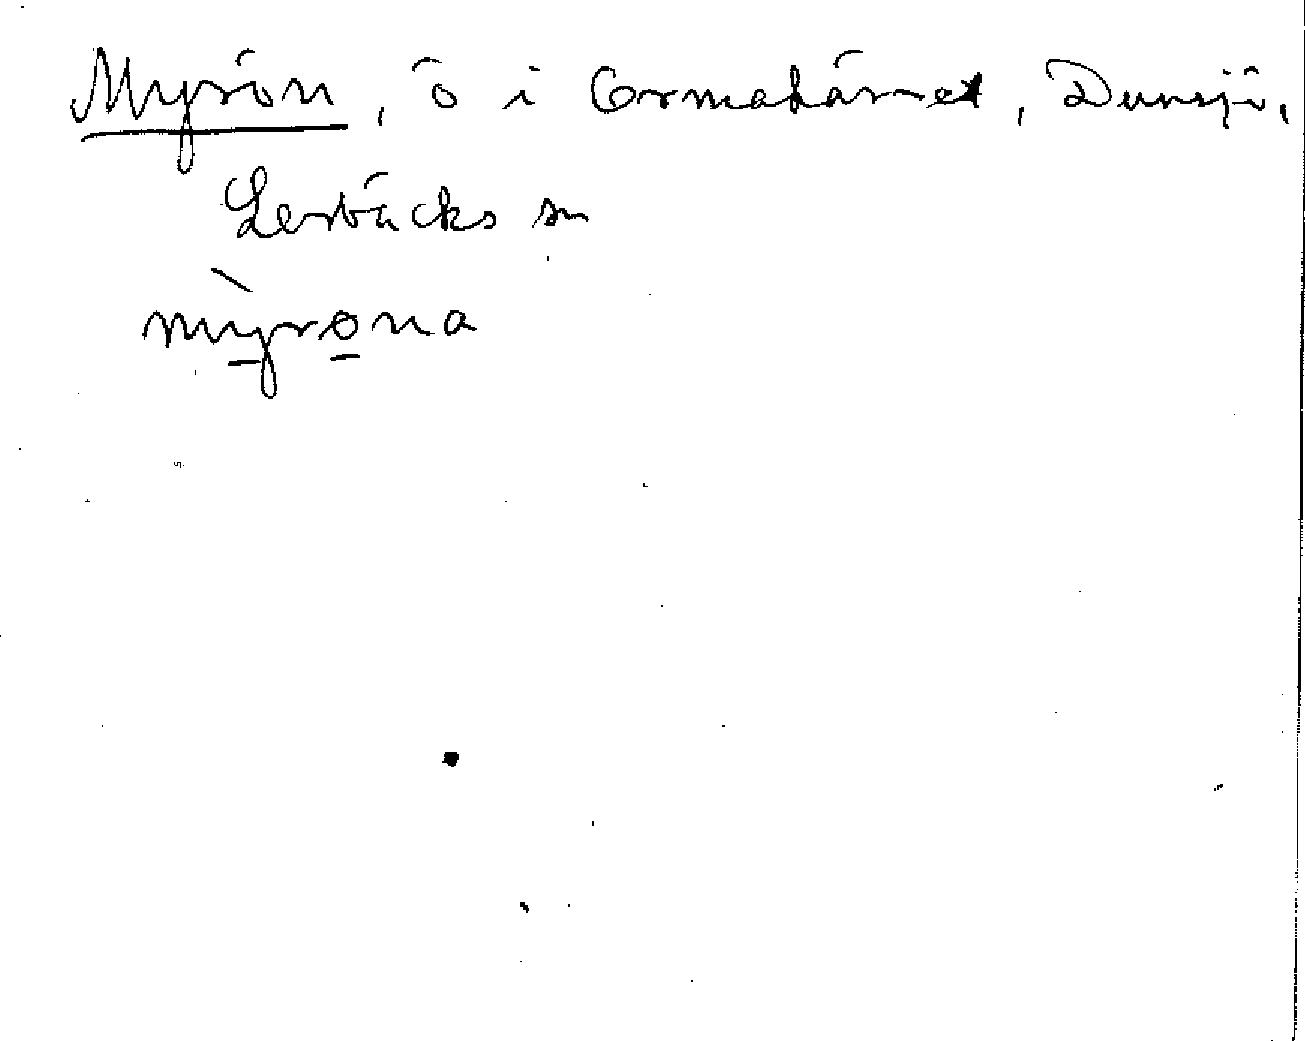 Myrön, ö i Ormakärret, Dunsjö,
Lerbäcks sn
mỳrona